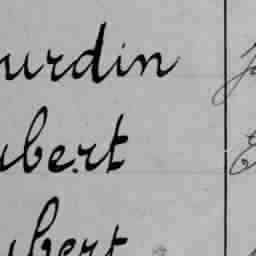 urdin
ubert
ubert